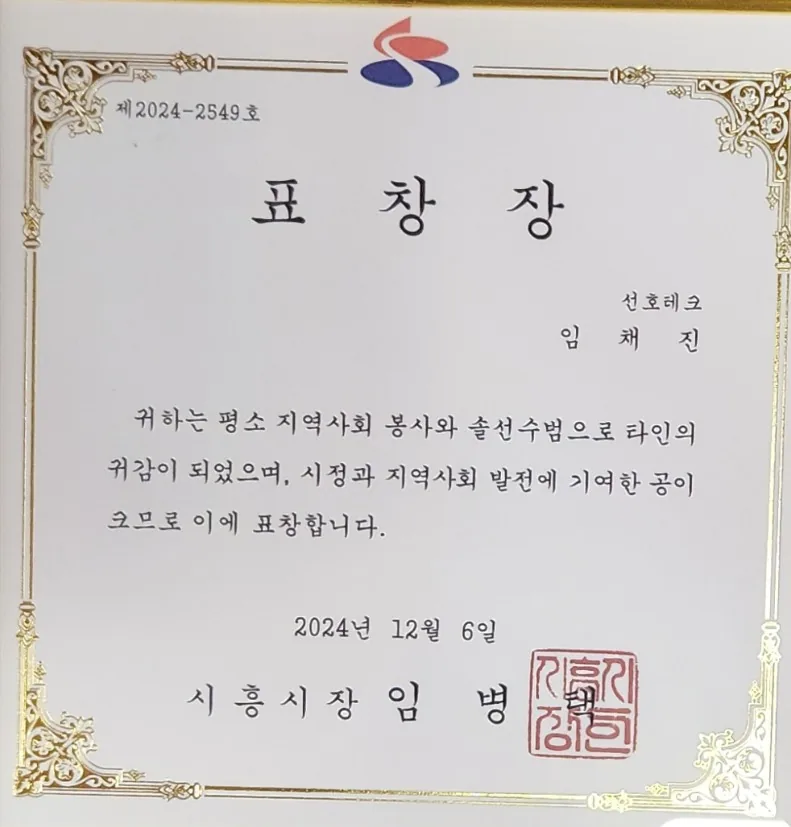 제2024-2549호
표 창 장
선호테크
임 채 진
귀하는 평소 지역사회 봉사와 솔선수범으로 타인의
귀감이 되었으며, 시정과 지역사회 발전에 기여한 공이
크므로 이에 표창합니다.
2024년 12월 6일
시 흥 시 장 임 병 택